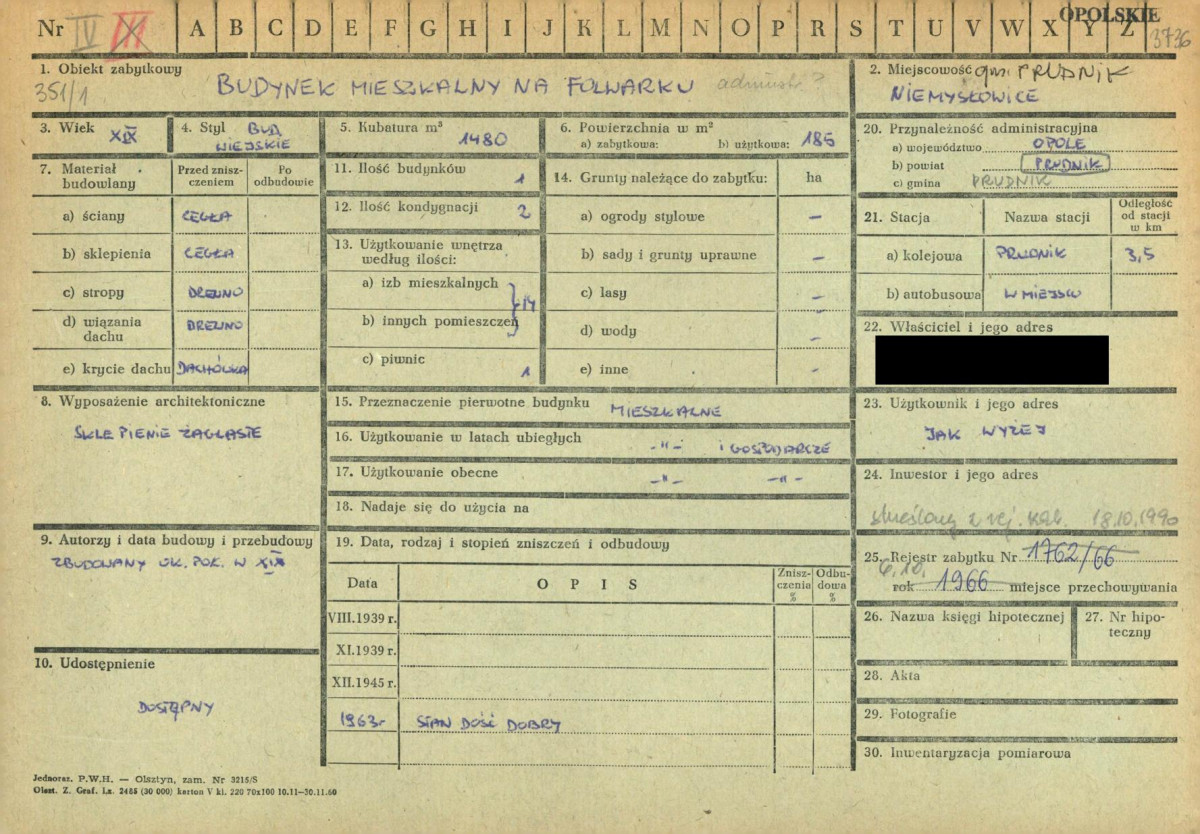 OPOLSKIE
Nr IV III A B C D E F G H I J K L M N O P R S T U V W X Y Z 3736
1. Obiekt zabytkowy
351/1 BUDYNEK MIESZKALNY NA FOLWARKU administr ?
2. Miejscowość gm. PRUDNIK
NIEMYSŁOWICE
3. Wiek XIX
4. Styl BUD WIEJSKIE
5. Kubatura m³ 1480
6. Powierzchnia w m²
a) zabytkowa: b) użytkowa: 185
20. Przynależność administracyjna
a) województwo OPOLE
b) powiat PRUDNIK
c) gmina PRUDNIK
7. Materiał budowlany Przed zniszczeniem Po odbudowie
a) ściany CEGŁA
b) sklepienia CEGŁA
c) stropy DREWNO
d) wiązania dachu DREWNO
e) krycie dachu DACHÓWKA
11. Ilość budynków 1
12. Ilość kondygnacji 2
13. Użytkowanie wnętrza według ilości:
a) izb mieszkalnych
b) innych pomieszczeń } 14
c) piwnic 1
14. Grunty należące do zabytku: ha
a) ogrody stylowe –
b) sady i grunty uprawne –
c) lasy –
d) wody –
e) inne –
21. Stacja Nazwa stacji Odległość od stacji w km
a) kolejowa PRUDNIK 3,5
b) autobusowa W MIEJSCU
22. Właściciel i jego adres
8. Wyposażenie architektoniczne
SKLEPIENIE ŻAGLASTE
15. Przeznaczenie pierwotne budynku MIESZKALNE
16. Użytkowanie w latach ubiegłych -"- i GOSPODARCZE
17. Użytkowanie obecne -"- -"-
18. Nadaje się do użycia na
23. Użytkownik i jego adres
JAK WYŻEJ
24. Inwestor i jego adres
skreślony z rej. zab. 18.10.1990
9. Autorzy i data budowy i przebudowy
ZBUDOWANY OK. POŁ. W XIX
19. Data, rodzaj i stopień zniszczeń i odbudowy
Data OPIS Zniszczenia % Odbudowa %
VIII.1939 r.
XI.1939 r.
XII.1945 r.
1963r STAN DOŚĆ DOBRY
25. Rejestr zabytku Nr 1762/66
6.10.
rok 1966 miejsce przechowywania
26. Nazwa księgi hipotecznej
27. Nr hipoteczny
10. Udostępnienie
DOSTĘPNY
28. Akta
29. Fotografie
30. Inwentaryzacja pomiarowa
Jednoraz. P.W.H. — Olsztyn, zam. Nr 3215/S
Olszt. Z. Graf. Lz. 2485 (30 000) karton V kl. 220 70x100 10.11—30.11.60